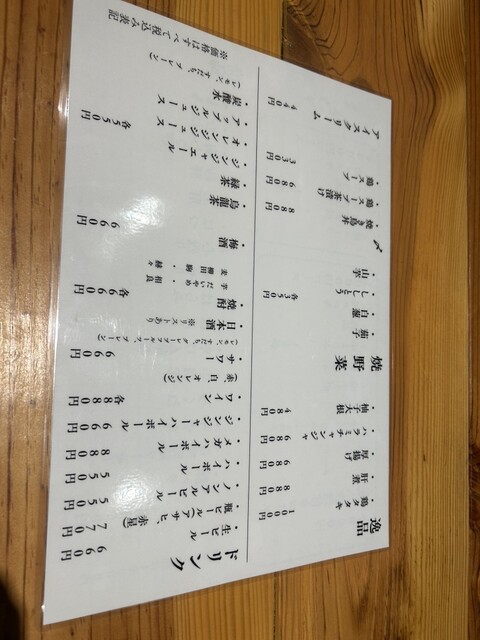 逸品
・鶏タタキ 1000円
・肝煮 880円
・厚揚げ 680円
・ハラミチャンジャ 680円
・柚子大根 480円
焼野菜
・茄子
・白葱
・ししとう 各350円
・山芋
〆
・焼き鳥丼 880円
・鶏スープ茶漬け 680円
・鶏スープ 330円
アイスクリーム 440円
ドリンク
・生ビール 660円
・瓶ビール(アサヒ、赤星) 770円
・ノンアルビール 550円
・ハイボール 550円
・メガハイボール 880円
・ジンジャーハイボール 660円
・ワイン 各880円
(赤、白、オレンジ)
・サワー 660円
(レモン、すだち、グレープフルーツ、プレーン)
・日本酒 ※リストあり
・焼酎 各660円
芋 だいやめ・相良
麦
・梅酒 660円
・烏龍茶
・緑茶
・ジンジャエール
・オレンジジュース 各550円
・アップルジュース
・炭酸水
(レモン、すだち、プレーン)
※価格はすべて税込み表記